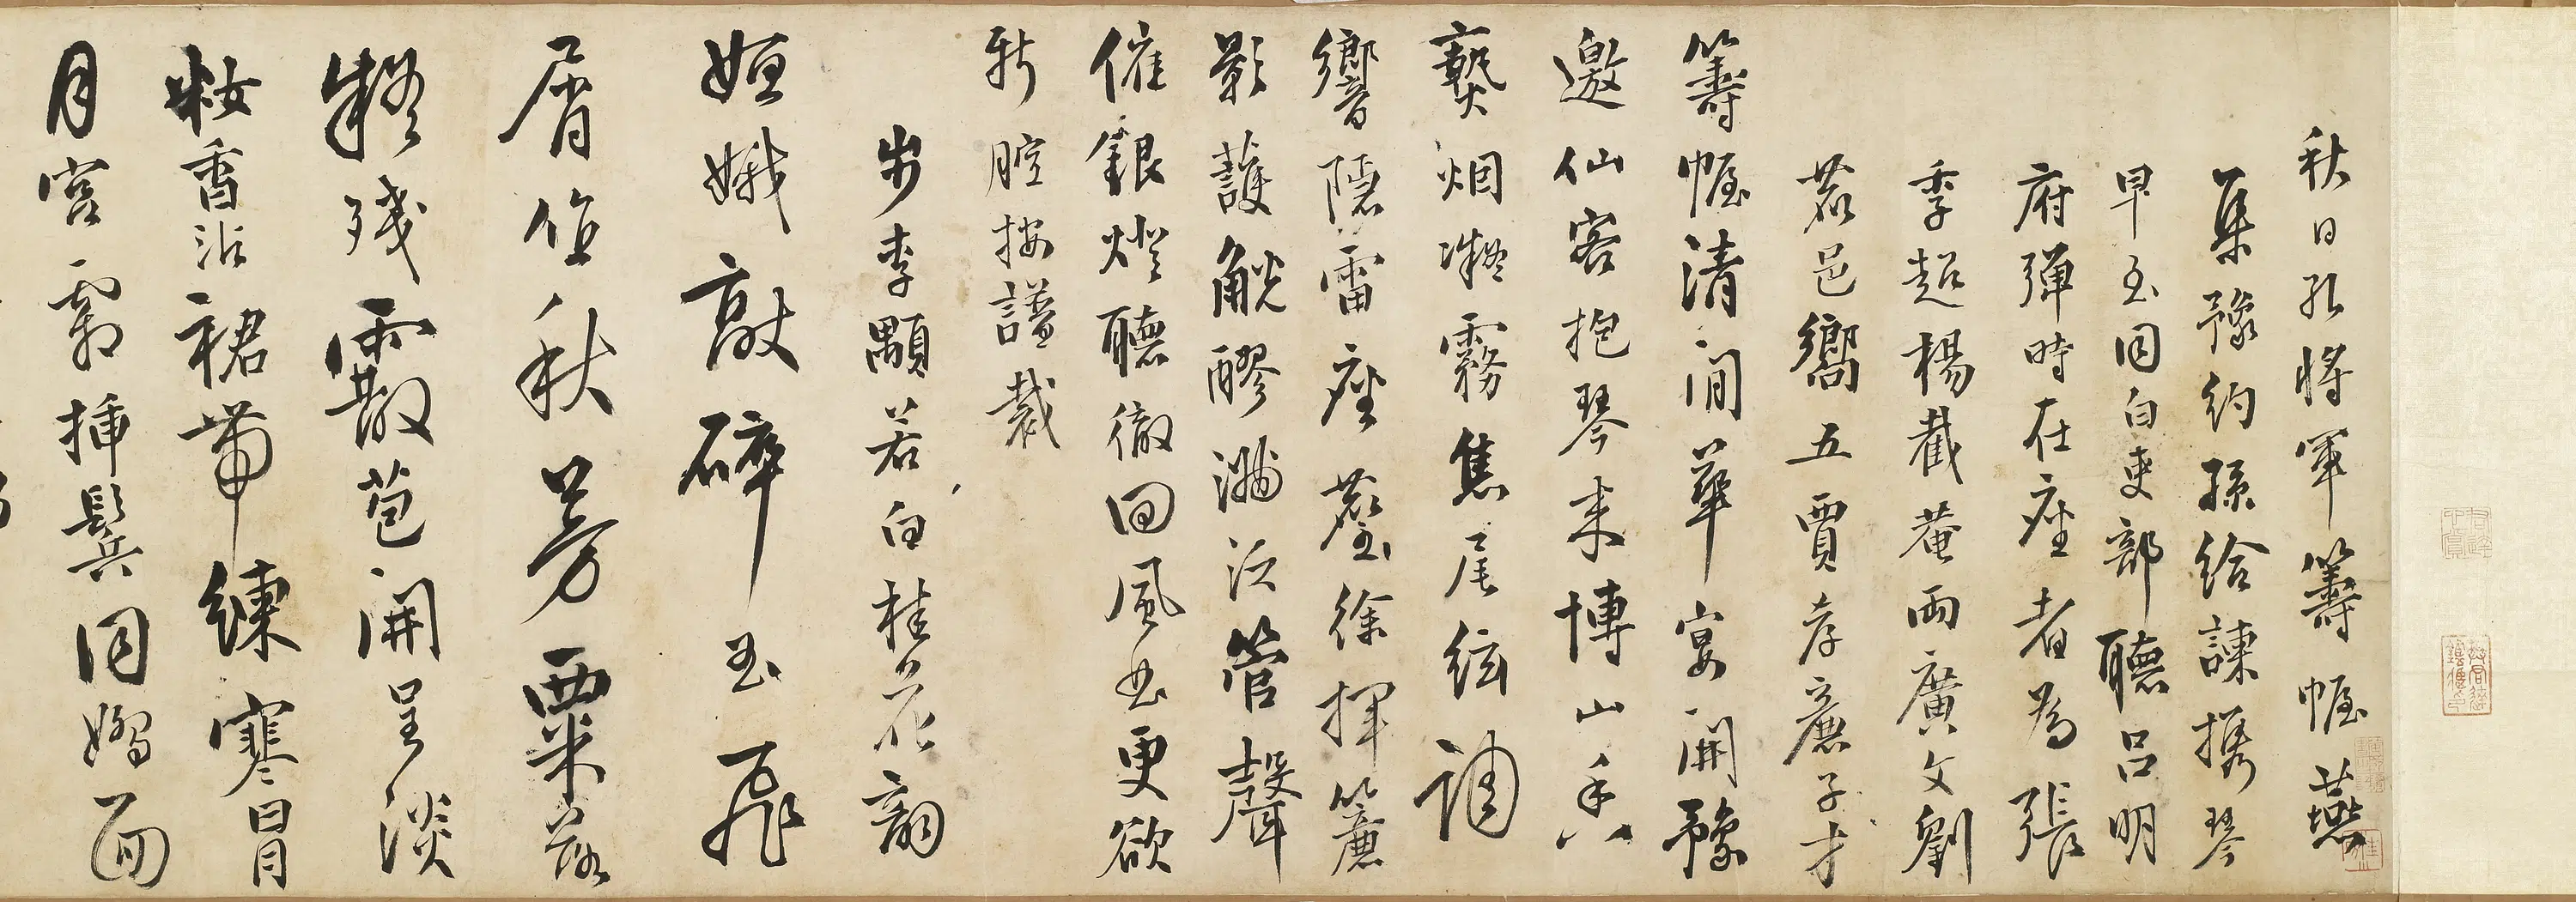 秋日孔將軍籌幄燕
集豫約孫給諫擕琴
早至同白吏部聽呂明
府彈時在座者為張
季超楊截菴両廣文劉
君邑嚮五賈孝廉子才
籌幄清閒華宴開豫
邀仙客抱琴来博山香
爇烟凝霧焦尾絃調
響隱雷座麈徐揮簾
影護觥醪潋泛管聲
催銀燈聽徹回風曲更欲
新腔按譜裁
步李顒若白桂花韻
姮娥敲碎玉飛
屑作秋芳粟蕊
凝殘霰苞開呈淡
妝香沾裙帶練寒冒
月宮霸插鬂同嫦面